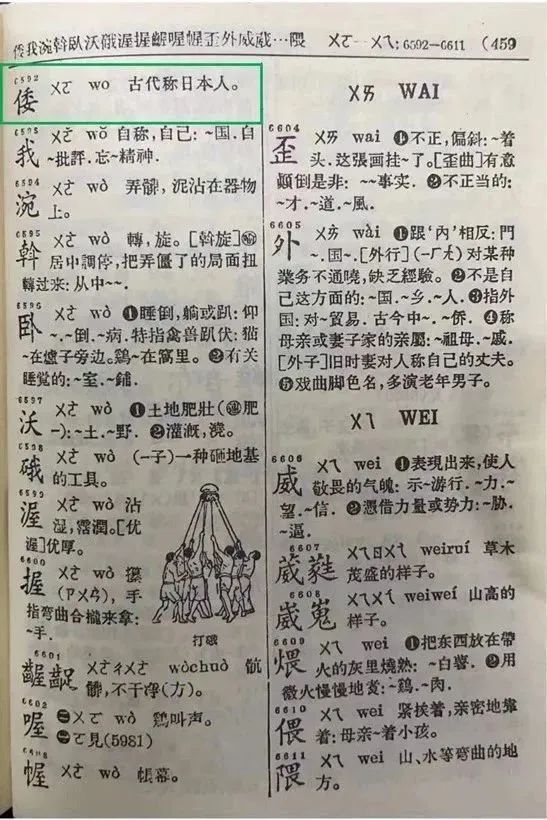 倭我涴斡臥沃硪渥握齷喔幄歪外威葳…隈 ㄨㄛ—ㄨㄟ:6592—6611 (459
6592
倭 ㄨㄛ wo 古代称日本人。
我 ㄨㄛˇ wǒ 自称,自己:~国.自
~批評.忘~精神.
6594
涴 ㄨㄛˋ wò 弄髒,泥沾在器物
上。
6595
斡 ㄨㄛˋ wò 轉,旋。[斡旋]
居中調停,把弄僵了的局面扭
轉过来:从中~~.
6596
卧 ㄨㄛˋ wò ❶睡倒,躺或趴:仰
~.~倒.~病.特指禽兽趴伏:猫
~在爐子旁边.鷄~在窩里.❷有关
睡觉的:~室.~鋪.
6597
沃 ㄨㄛˋ wò ❶土地肥壯(連肥
—):~土.~野.❷灌漑,澆。
硪 ㄨㄛˋ wò (—子)一种砸地基
的工具。
6599
渥 ㄨㄛˋ wò 沾
湿,霑潤。[优
渥]优厚。
6600
握 ㄨㄛˋ wò 攥
(ㄗㄨㄢˋ),手
指弯曲合攏来拿:
~手.
打硪
6601
齷齪 ㄨㄛˋㄔㄨㄛˋ wòchuò 骯
髒,不干净(方)。
6602
喔 ㊀ㄨㄛ wo 鷄叫声。
㊁ㄛ見(5981)
幄 ㄨㄛˋ wò 帳幕。
ㄨㄞ WAI
6604
歪 ㄨㄞ wai ❶不正,偏斜:~着
头.这張画挂~了.[歪曲]有意
顛倒是非:~~事实.❷不正当的:
~才.~道.~風.
6605
外 ㄨㄞˋ wài ❶跟‘内’相反:門
~.国~.[外行](—ㄏㄤˊ)对某种
業务不通曉,缺乏經驗。❷不是自
己这方面的:~国.~乡.~人.❸指外
国:对~貿易.古今中~.~侨.❹称
母亲或妻子家的亲屬:~祖母.~戚.
[外子]旧时妻对人称自己的丈夫。
❺戏曲脚色名,多演老年男子。
ㄨㄟ WEI
6606
威 ㄨㄟ wei ❶表現出来,使人
敬畏的气魄:示~游行.~力.~
望.~信.❷憑借力量或势力:~胁.
~逼.
6607
葳蕤 ㄨㄟㄖㄨㄟˊ weiruí 草木
茂盛的样子。
6608
崴嵬 ㄨㄟㄨㄟˊ weiweí 山高的
样子。
6609
煨 ㄨㄟ wei ❶把东西放在帶
火的灰里燒熟:~白薯.❷用
微火慢慢地煑:~鷄.~肉.
6610
偎 ㄨㄟ wei 紧挨着,亲密地靠
着:母亲~着小孩.
6611
隈 ㄨㄟ wei 山、水等弯曲的地
方。